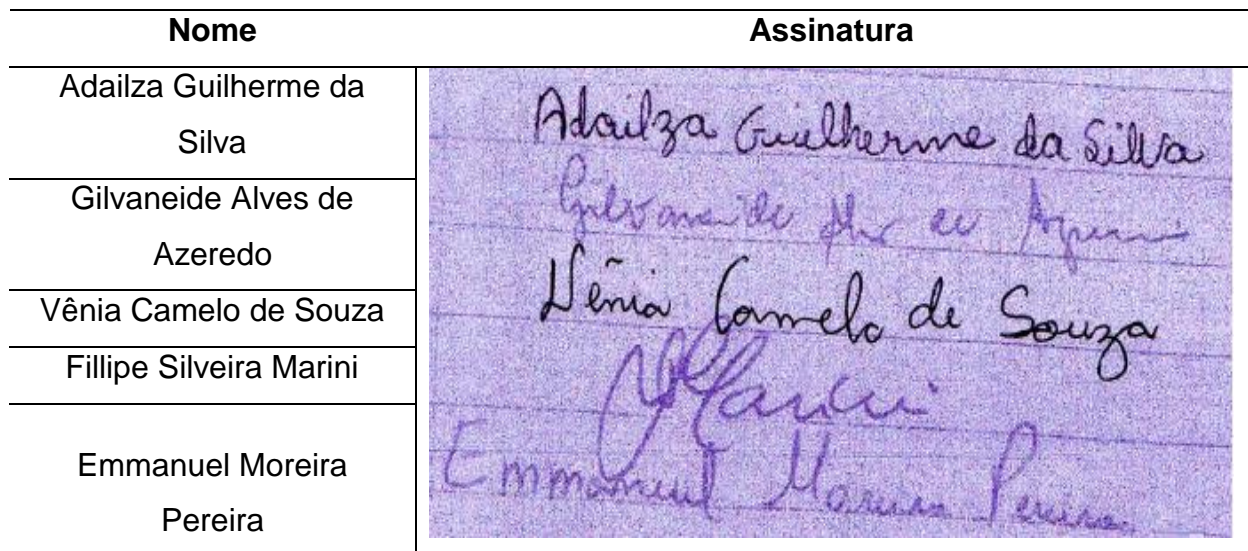 Nome Assinatura
Adailza Guilherme da
Silva
Adailza Guilherme da Silva
Gilvaneide Alves de
Azeredo
Gilvaneide
Vênia Camelo de Souza
Vênia Camelo de Souza
Fillipe Silveira Marini
Marini
Emmanuel Moreira
Pereira
Emmanuel Moreira Pereira